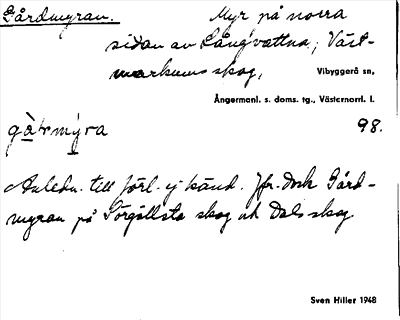 Gårdmyran. Myr på norra
sidan av Långvattna, Väst-
markums skog, Vibyggerå sn,
Ångermanl. s. doms. tg., Västernorrl. l.
gàrmýra 98.
Anledn. till förl. ej känd. Jfr. dock Gård-
myran på Törgöllsta skog och Dals skog
Sven Hiller 1948